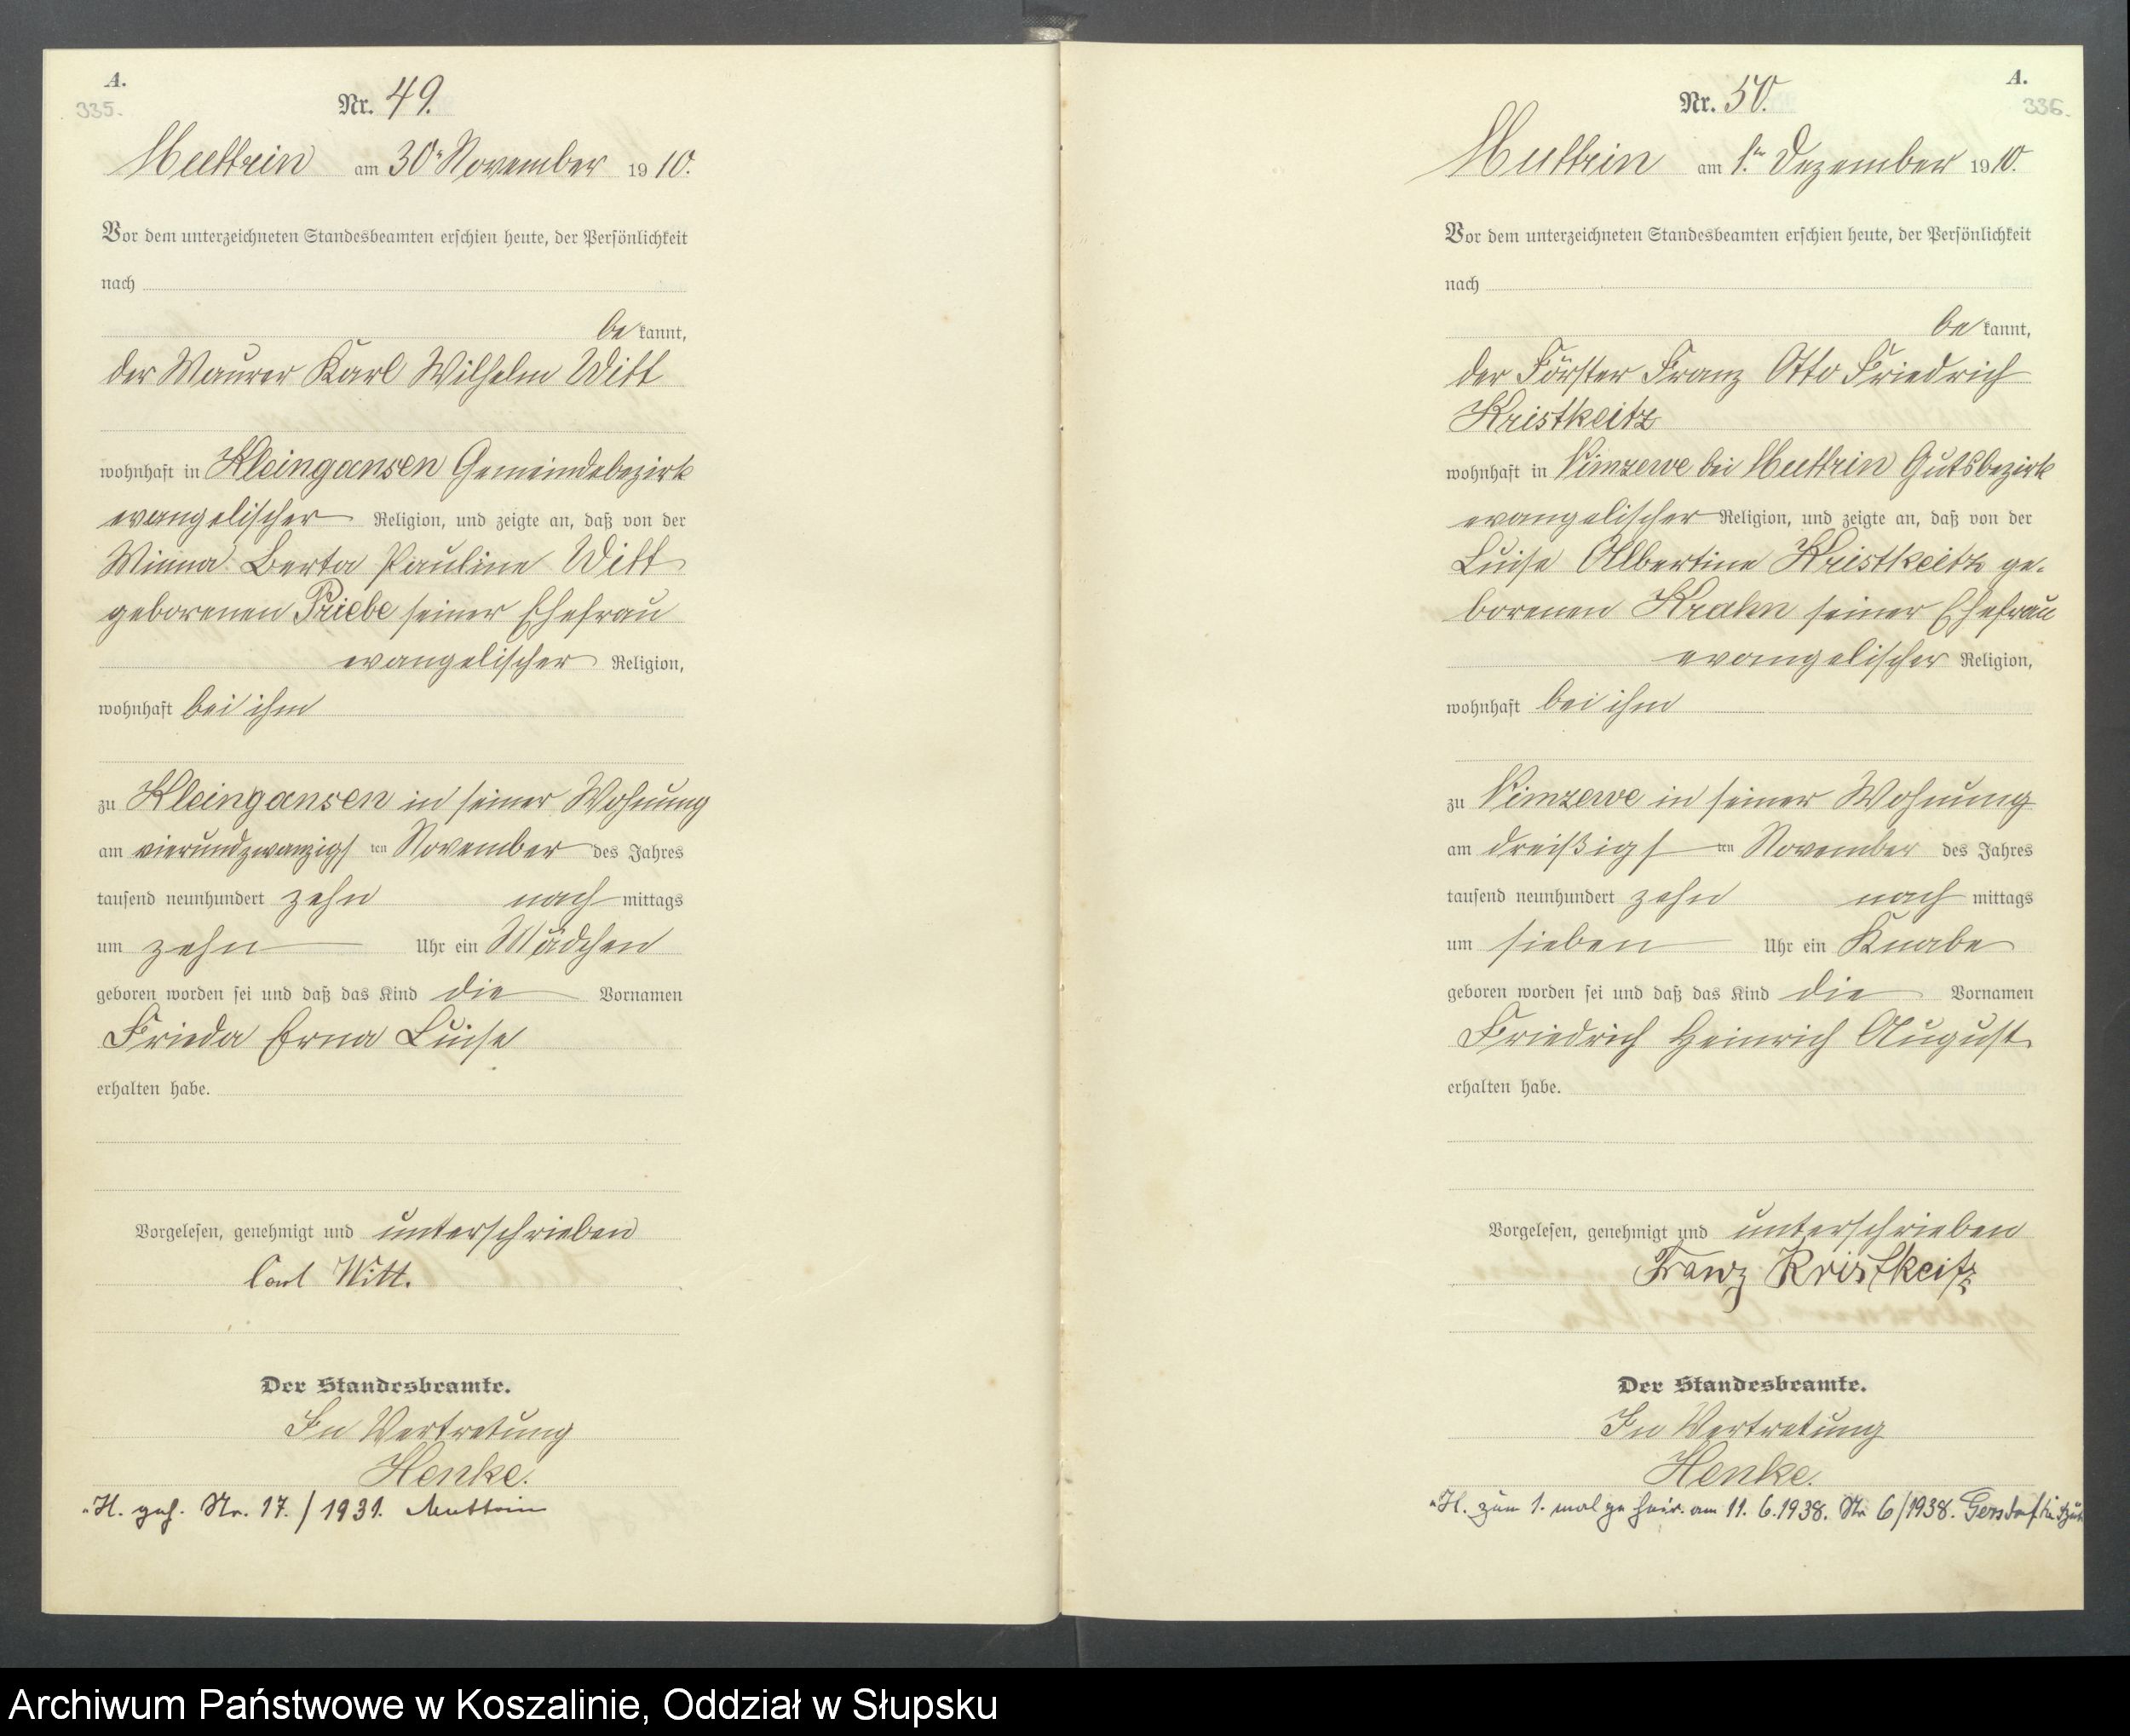 A.
335.
Nr. 49.
Muttrin am 30ⁿ November 1910.
Vor dem unterzeichneten Standesbeamten erschien heute, der Persönlichkeit
nach
be kannt,
der Maurer Karl Wilhelm Witt
wohnhaft in Kleingansen Gemeindebezirk
evangelischer Religion, und zeigte an, daß von der
Minna Berta Pauline Witt
geborenen Priebe seiner Ehefrau
evangelischer Religion,
wohnhaft bei ihm
zu Kleingansen in seiner Wohnung
am vierundzwanzigs ten November des Jahres
tausend neunhundert zehn nach mittags
um zehn Uhr ein Mädchen
geboren worden sei und daß das Kind die Vornamen
Frieda Erna Luise
erhalten habe.
Vorgelesen, genehmigt und unterschrieben
Carl Witt.
Der Standesbeamte.
In Vertretung
Henke.
H. geh. Nr. 17. / 1931. Muttrin
A.
336.
Nr. 50.
Muttrin am 1ten Dezember 1910.
Vor dem unterzeichneten Standesbeamten erschien heute, der Persönlichkeit
nach
be kannt,
der Förster Franz Otto Friedrich
Kristkeitz
wohnhaft in Nimzewe bei Muttrin Gutsbezirk
evangelischer Religion, und zeigte an, daß von der
Luise Albertine Kristkeitz ge-
borenen Krahn seiner Ehefrau
evangelischer Religion,
wohnhaft bei ihm
zu Nimzewe in seiner Wohnung
am dreißigs ten November des Jahres
tausend neunhundert zehn nach mittags
um sieben Uhr ein Knabe
geboren worden sei und daß das Kind die Vornamen
Friedrich Heinrich August
erhalten habe.
Vorgelesen, genehmigt und unterschrieben
Franz Kristkeitz
Der Standesbeamte.
In Vertretung
Henke.
H. zum 1. mal geheir. am 11. 6. 1938. Nr 6/1938. Gersdorf
Archiwum Państwowe w Koszalinie, Oddział w Słupsku